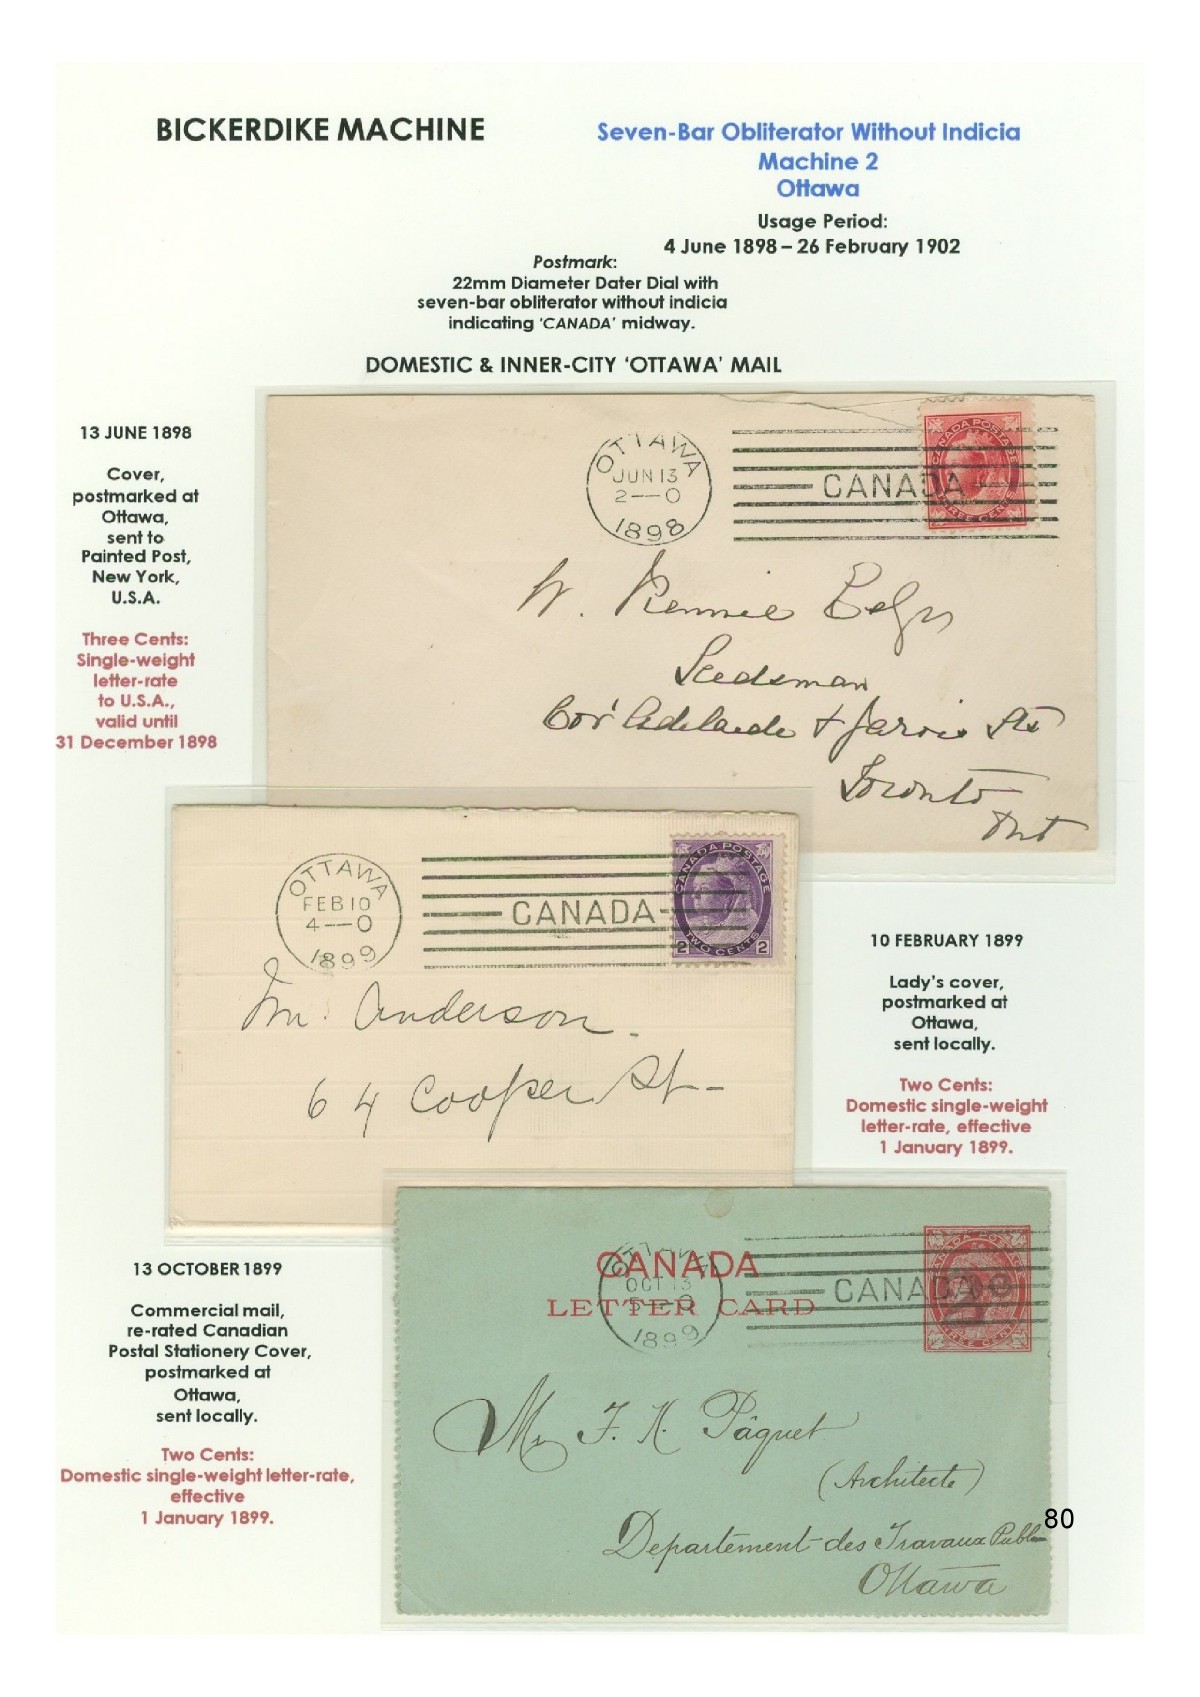 BICKERDIKE MACHINE
Seven-Bar Obliterator Without Indicia
Machine 2
Ottawa
Usage Period:
4 June 1898 – 26 February 1902
Postmark:
22mm Diameter Dater Dial with
seven-bar obliterator without indicia
indicating 'CANADA' midway.
DOMESTIC & INNER-CITY 'OTTAWA' MAIL
13 JUNE 1898
Cover,
postmarked at
Ottawa,
sent to
Painted Post,
New York,
U.S.A.
Three Cents:
Single-weight
letter-rate
to U.S.A.,
valid until
31 December 1898
OTTAWA
JUN 13
2—0
1898
CANADA
CANADA POSTAGE
THREE CENTS
W. Rennie Esqr
Seedsman
Cor' Adelaide & Jarvis Sts
Toronto
Ont
OTTAWA
FEB 10
4—0
1899
CANADA
CANADA POSTAGE
2 TWO CENTS 2
Mr. Anderson.
64 Cooper St—
10 FEBRUARY 1899
Lady's cover,
postmarked at
Ottawa,
sent locally.
Two Cents:
Domestic single-weight
letter-rate, effective
1 January 1899.
13 OCTOBER 1899
Commercial mail,
re-rated Canadian
Postal Stationery Cover,
postmarked at
Ottawa,
sent locally.
Two Cents:
Domestic single-weight letter-rate,
effective
1 January 1899.
CANADA
LETTER CARD
OTTAWA
OCT 13
5—0
1899
CANADA
CANADA POSTAGE
THREE CENTS
2c
Mr F. X. Pâquet
(Architecte)
Departement des Travaux Publ
Ottawa
80